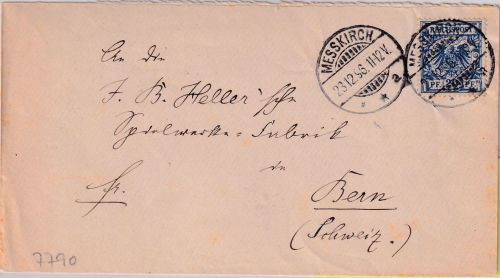 An die
J. B. Heller'sche
Spielwerke-Fabrik
in
fr.
Bern
(Schweiz.)
MESSKIRCH
23.12.96.11-12V.
a
REICHSPOST
PFENNIG
7790